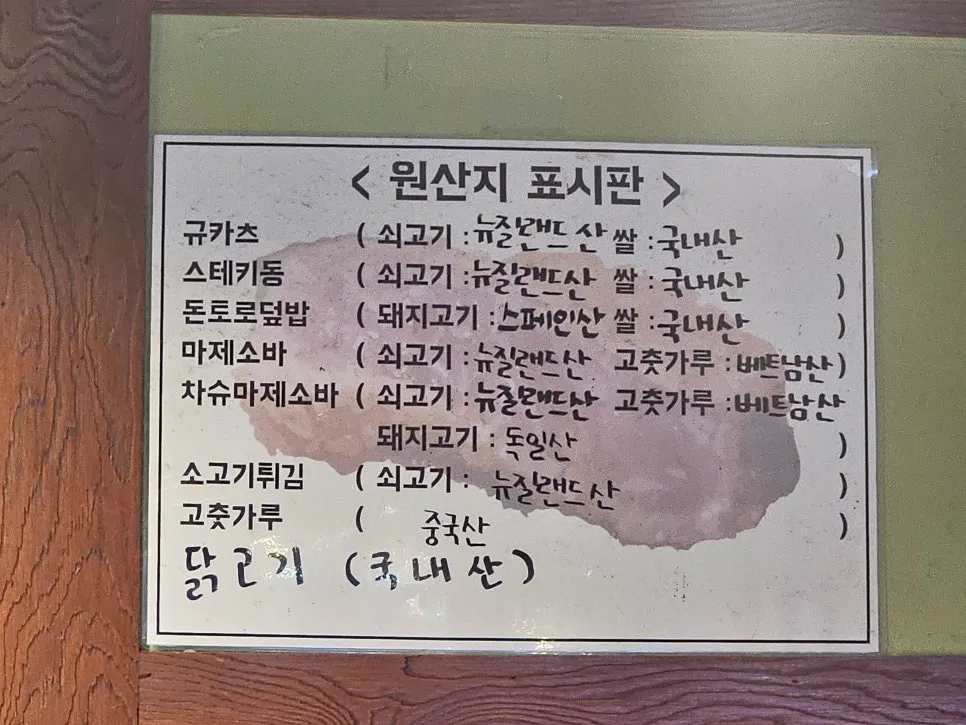 < 원산지 표시판 >
규카츠 ( 쇠고기 : 뉴질랜드산 쌀 : 국내산 )
스테키동 ( 쇠고기 : 뉴질랜드산 쌀 : 국내산 )
돈토로덮밥 ( 돼지고기 : 스페인산 쌀 : 국내산 )
마제소바 ( 쇠고기 : 뉴질랜드산 고춧가루 : 베트남산 )
차슈마제소바 ( 쇠고기 : 뉴질랜드산 고춧가루 : 베트남산
돼지고기 : 독일산 )
소고기튀김 ( 쇠고기 : 뉴질랜드산 )
고춧가루 ( 중국산 )
닭고기 (국내산)